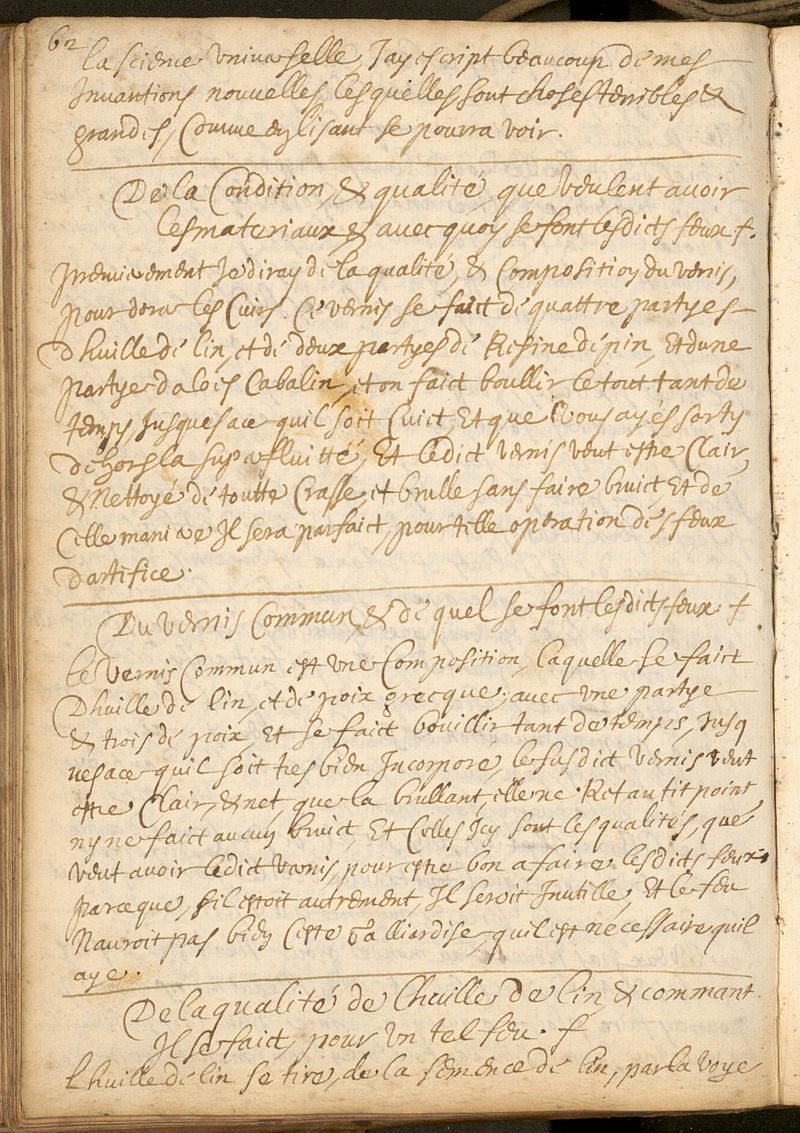 62
la science universelle, Jay escript beaucoup de mes
Invantions nouvelles, lesquelles sont choses terribles &
grandes, Comme en lisant se pourra voir.
De la Condition, & qualité, que veulent avoir
les materiaux & avec quoy se font lesdicts feux f.
Premierement Je diray de la qualité, & Composition du vernis,
pour dorer les Cuirs. Ce vernis se faict de quattre partyes
dhuille de lin, et de deux partyes de Resine de pin, Et dune
partye daloes Cabalin, et on faict boullir le tout tant de
temps Jusques a ce quil soit Cuict, Et que vous ayés sorty
dehors la superfluitté, Et ledict vernis veut estre Clair,
& Nettoyé de toutte Crasse, et brulle sans faire bruict, Et de
Celle maniere Il sera parfaict, pour telle operation des feux
dartifice.
Du vernis Commun, & de quel se font lesdicts feux. f
le vernis Commun est une Composition, laquelle se faict
Dhuille de lin, et de poix grecque, avec une partye
& trois de poix, Et se faict bouillir tant de temps, Jusq
ues a ce quil soit tres bien Incorporé, le susdict vernis veut
estre Clair, & net, que la brullant, elle ne Retantit point
ny ne faict aucun bruict, Et Celles Icy sont les qualités, que
veut avoir ledict vernis, pour estre bon a faire lesdicts feux,
parceque, sil estoit autrement, Il seroit Inutille, Et le feu
Nauroit pas bien Ceste galliardise, quil est nécessaire quil
aye.
De la qualité de Lhuille de lin, & commant
Il se faict, pour un tel feu. f
Lhuille de lin se tire, de la semence de lin, par la voye